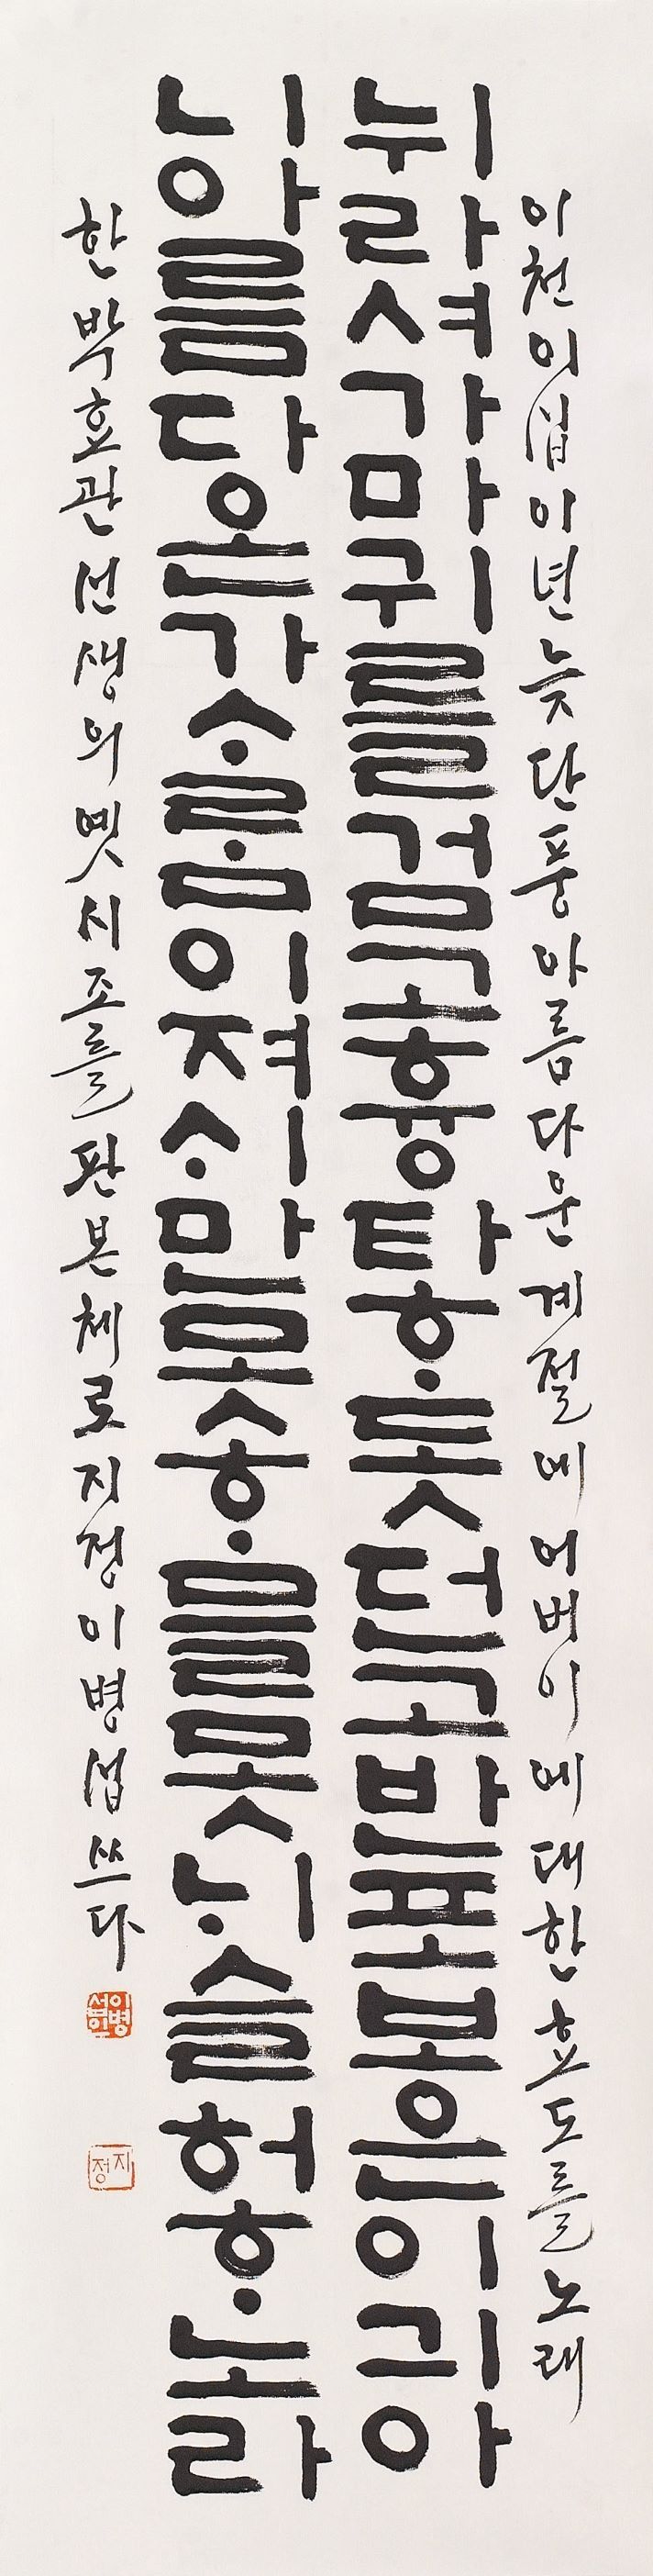 이천이십이년늦단풍아름다운계절에어버이에대한효도를노래
뉘라셔가마귀를검고흉타ᄒᆞ돗던고반포보은이긔아
니아름다온가ᄉᆞᄅᆞᆷ이져ᄉᆡ만못ᄒᆞ믈못ᄂᆡ슬허ᄒᆞ노라
한박효관선생의옛시조를판본체로지정이병섭쓰다
이병섭인
지정